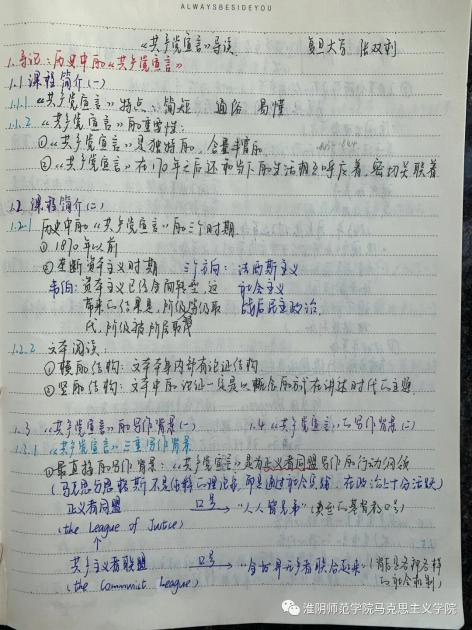 ALWAYSBESIDEYOU
《共产党宣言》导读 复旦大学 张双利
1. 导论：历史中的《共产党宣言》
1.1 课程简介（一）
1.1.1 《共产党宣言》特点：简短 通俗 易懂
1.1.2 《共产党宣言》的重要性：
①《共产党宣言》是独特的，含量丰富的
②《共产党宣言》在170年之后还和当下的生活相互呼应着，密切关联着
1.2 课程简介（二）
1.2.1 历史中的《共产党宣言》的三个时期
① 1870年以前
② 垄断资本主义时期 三个方向：法西斯主义
韦伯：资本主义已经自我转型，这 社会主义
带来的结果是，阶级将取 战后民主政治
代，阶级被阶层取代
1.2.2 文本阅读：
①横的结构：文本本身内部有论证结构
②竖的结构：文本中的论证一定是以概念的方式在讲述时代的主题
1.3 《共产党宣言》的写作背景（一） 1.4 《共产党宣言》的写作背景（二）
1.3.1 《共产党宣言》三重写作背景
①最直接的写作背景：《共产党宣言》是为正义者同盟写作的行动纲领
（马克思与恩格斯不是纯粹的理论家，而是通过社会实践，在政治上十分活跃）
正义者同盟 口号→ “人人皆兄弟”（典型的基督教口号）
(the League of Justice)
↑
共产主义者联盟 口号→ “全世界无产者联合起来”（背后是各种各样
(the Communist League) 的社会批判）
淮阴师范学院马克思主义学院